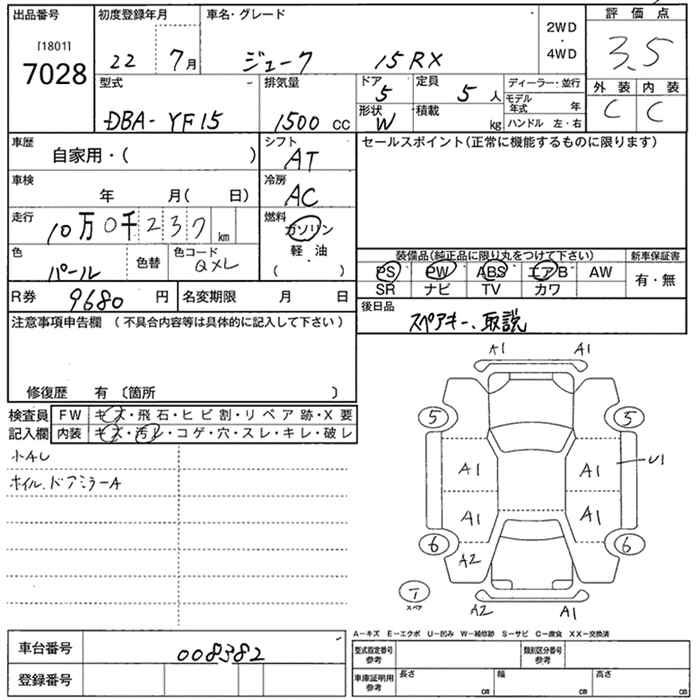 出品番号 初度登録年月 車名・グレード 評価点
[1801]
7028
22 7月 ジューク 15RX 2WD・4WD 3.5
型式 排気量 ドア 定員 ディーラー・並行 外装 内装
DBA-YF15 1500 CC 5 5人 モデル年式 年 C C
形状 W 積載 kg ハンドル 左・右
車歴 シフト セールスポイント(正常に機能するものに限ります)
自家用・( ) AT
車検 冷房
年 月( 日) AC
走行 燃料
10万0千237km ガソリン
軽・油
( )
色 色替 色コード
パール QXL
装備品(純正品に限り丸をつけて下さい) 新車保証書
PS PW ABS エアB AW 有・無
SR ナビ TV カワ
R券 9680円 名変期限 月 日
後日品
スペアキー、取説
注意事項申告欄 (不具合内容等は具体的に記入して下さい)
修復歴 有 〔箇所 〕
検査員 FW キズ・飛石・ヒビ割・リペア跡・X要
記入欄 内装 キズ・汚レ・コゲ・穴・スレ・キレ・破レ
小AU
ホイル、ドアミラーA
A1 A1
5 5
A1 A1 U1
A1 A1
6 6
A2
T
スペア
A2 A1
A-キズ E-エクボ U-凹み W-補修跡 S-サビ C-腐食 XX-交換済
車台番号 008382
登録番号
型式指定番号 参考 類別区分番号 参考
車庫証明用 参考 長さ cm 幅 cm 高さ cm